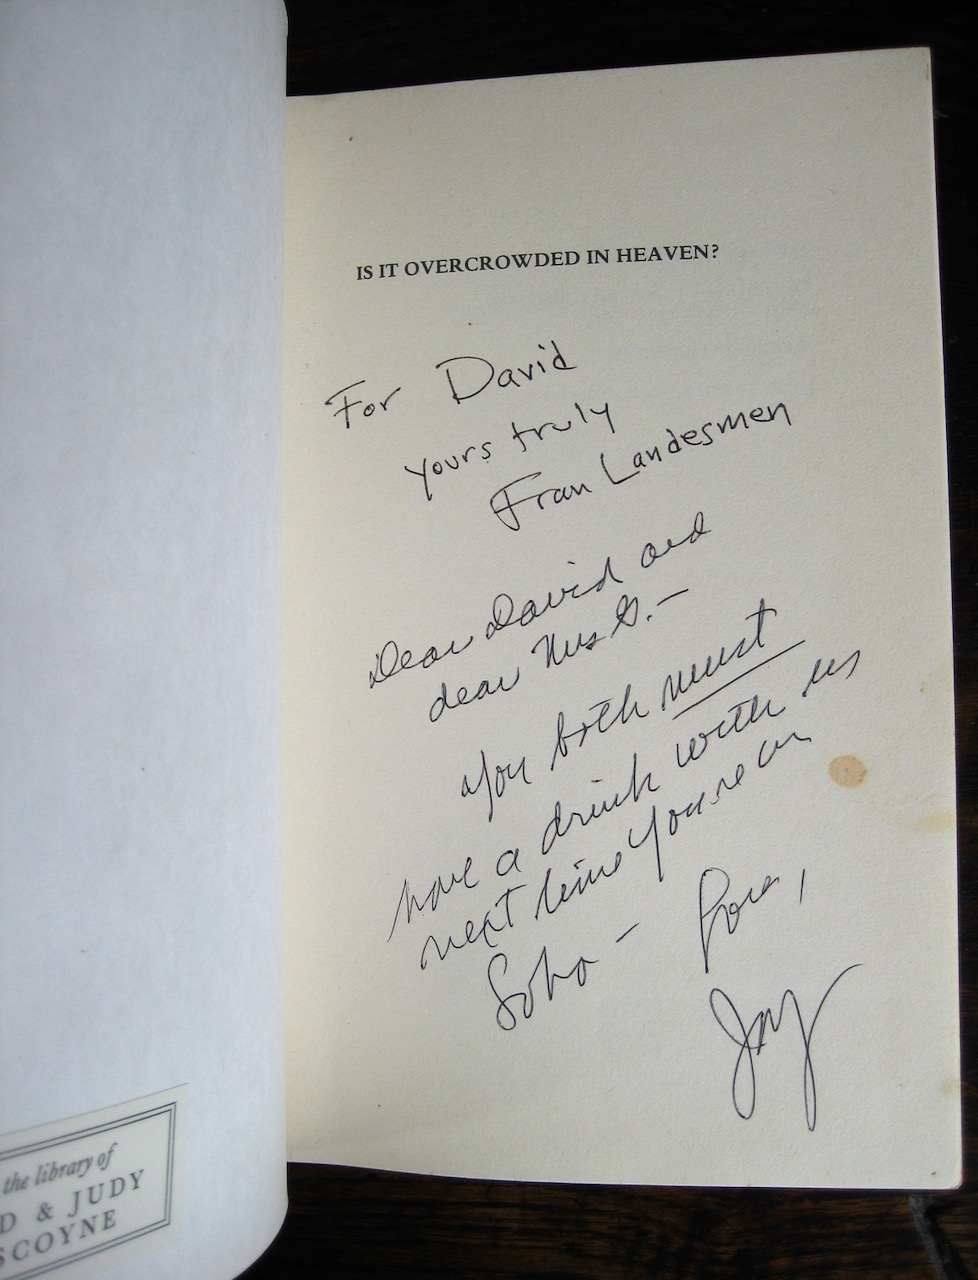 IS IT OVERCROWDED IN HEAVEN?
For David
yours truly
Fran Landesmen
Dear David and
dear Mrs G. –
You both must
have a drink with us
next time you're in
Soho – Love,
Jay
the library of
D & JUDY
SCOYNE